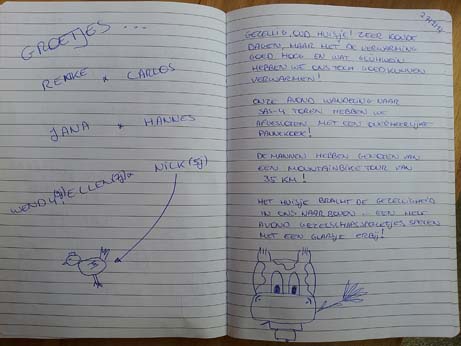 GROETJES ...
RENKE & CARLOS
JANA & HANNES
WENDY, ELLEN & NICK (5j)
GEZELLIG, OUD HUISJE! ZEER KOUDE
DAGEN, MAAR MET DE VERWARMING
GOED HOOG EN WAT GLÜHWEIN
HEBBEN WE ONS TOCH GOED KUNNEN
VERWARMEN!
ONZE AVOND WANDELING NAAR
SAS-4 TOREN HEBBEN WE
AFGESLOTEN MET EEN OVERHEERLIJKE
PANNEKOEK!
DE MANNEN HEBBEN GENOTEN VAN
EEN MOUNTAINBIKE TOUR VAN
35 KM!
HET HUISJE BRACHT DE GEZELLIGHEID
IN ONS NAAR BOVEN EEN HELE
AVOND GEZELSCHAPSSPELLETJES SPELEN
MET EEN GLAASJE ERBIJ!